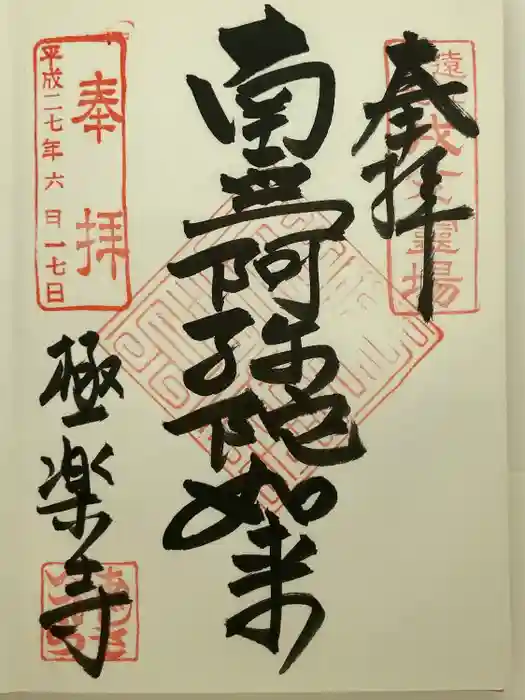 奉拝
霊場
南無阿弥陀如来
奉拝
平成二七年六月一七日
極楽寺